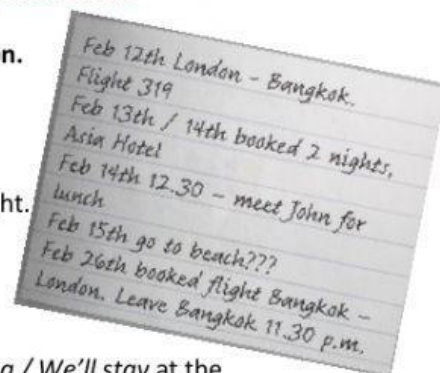 n.
Feb 12th London - Bangkok.
Flight 319
Feb 13th / 14th booked 2 nights,
Asia Hotel
Feb 14th 12.30 - meet John for
lunch
Feb 15th go to beach???
Feb 26th booked flight Bangkok -
London. Leave Bangkok 11.30 p.m.
ht.
a / We'll stay at the